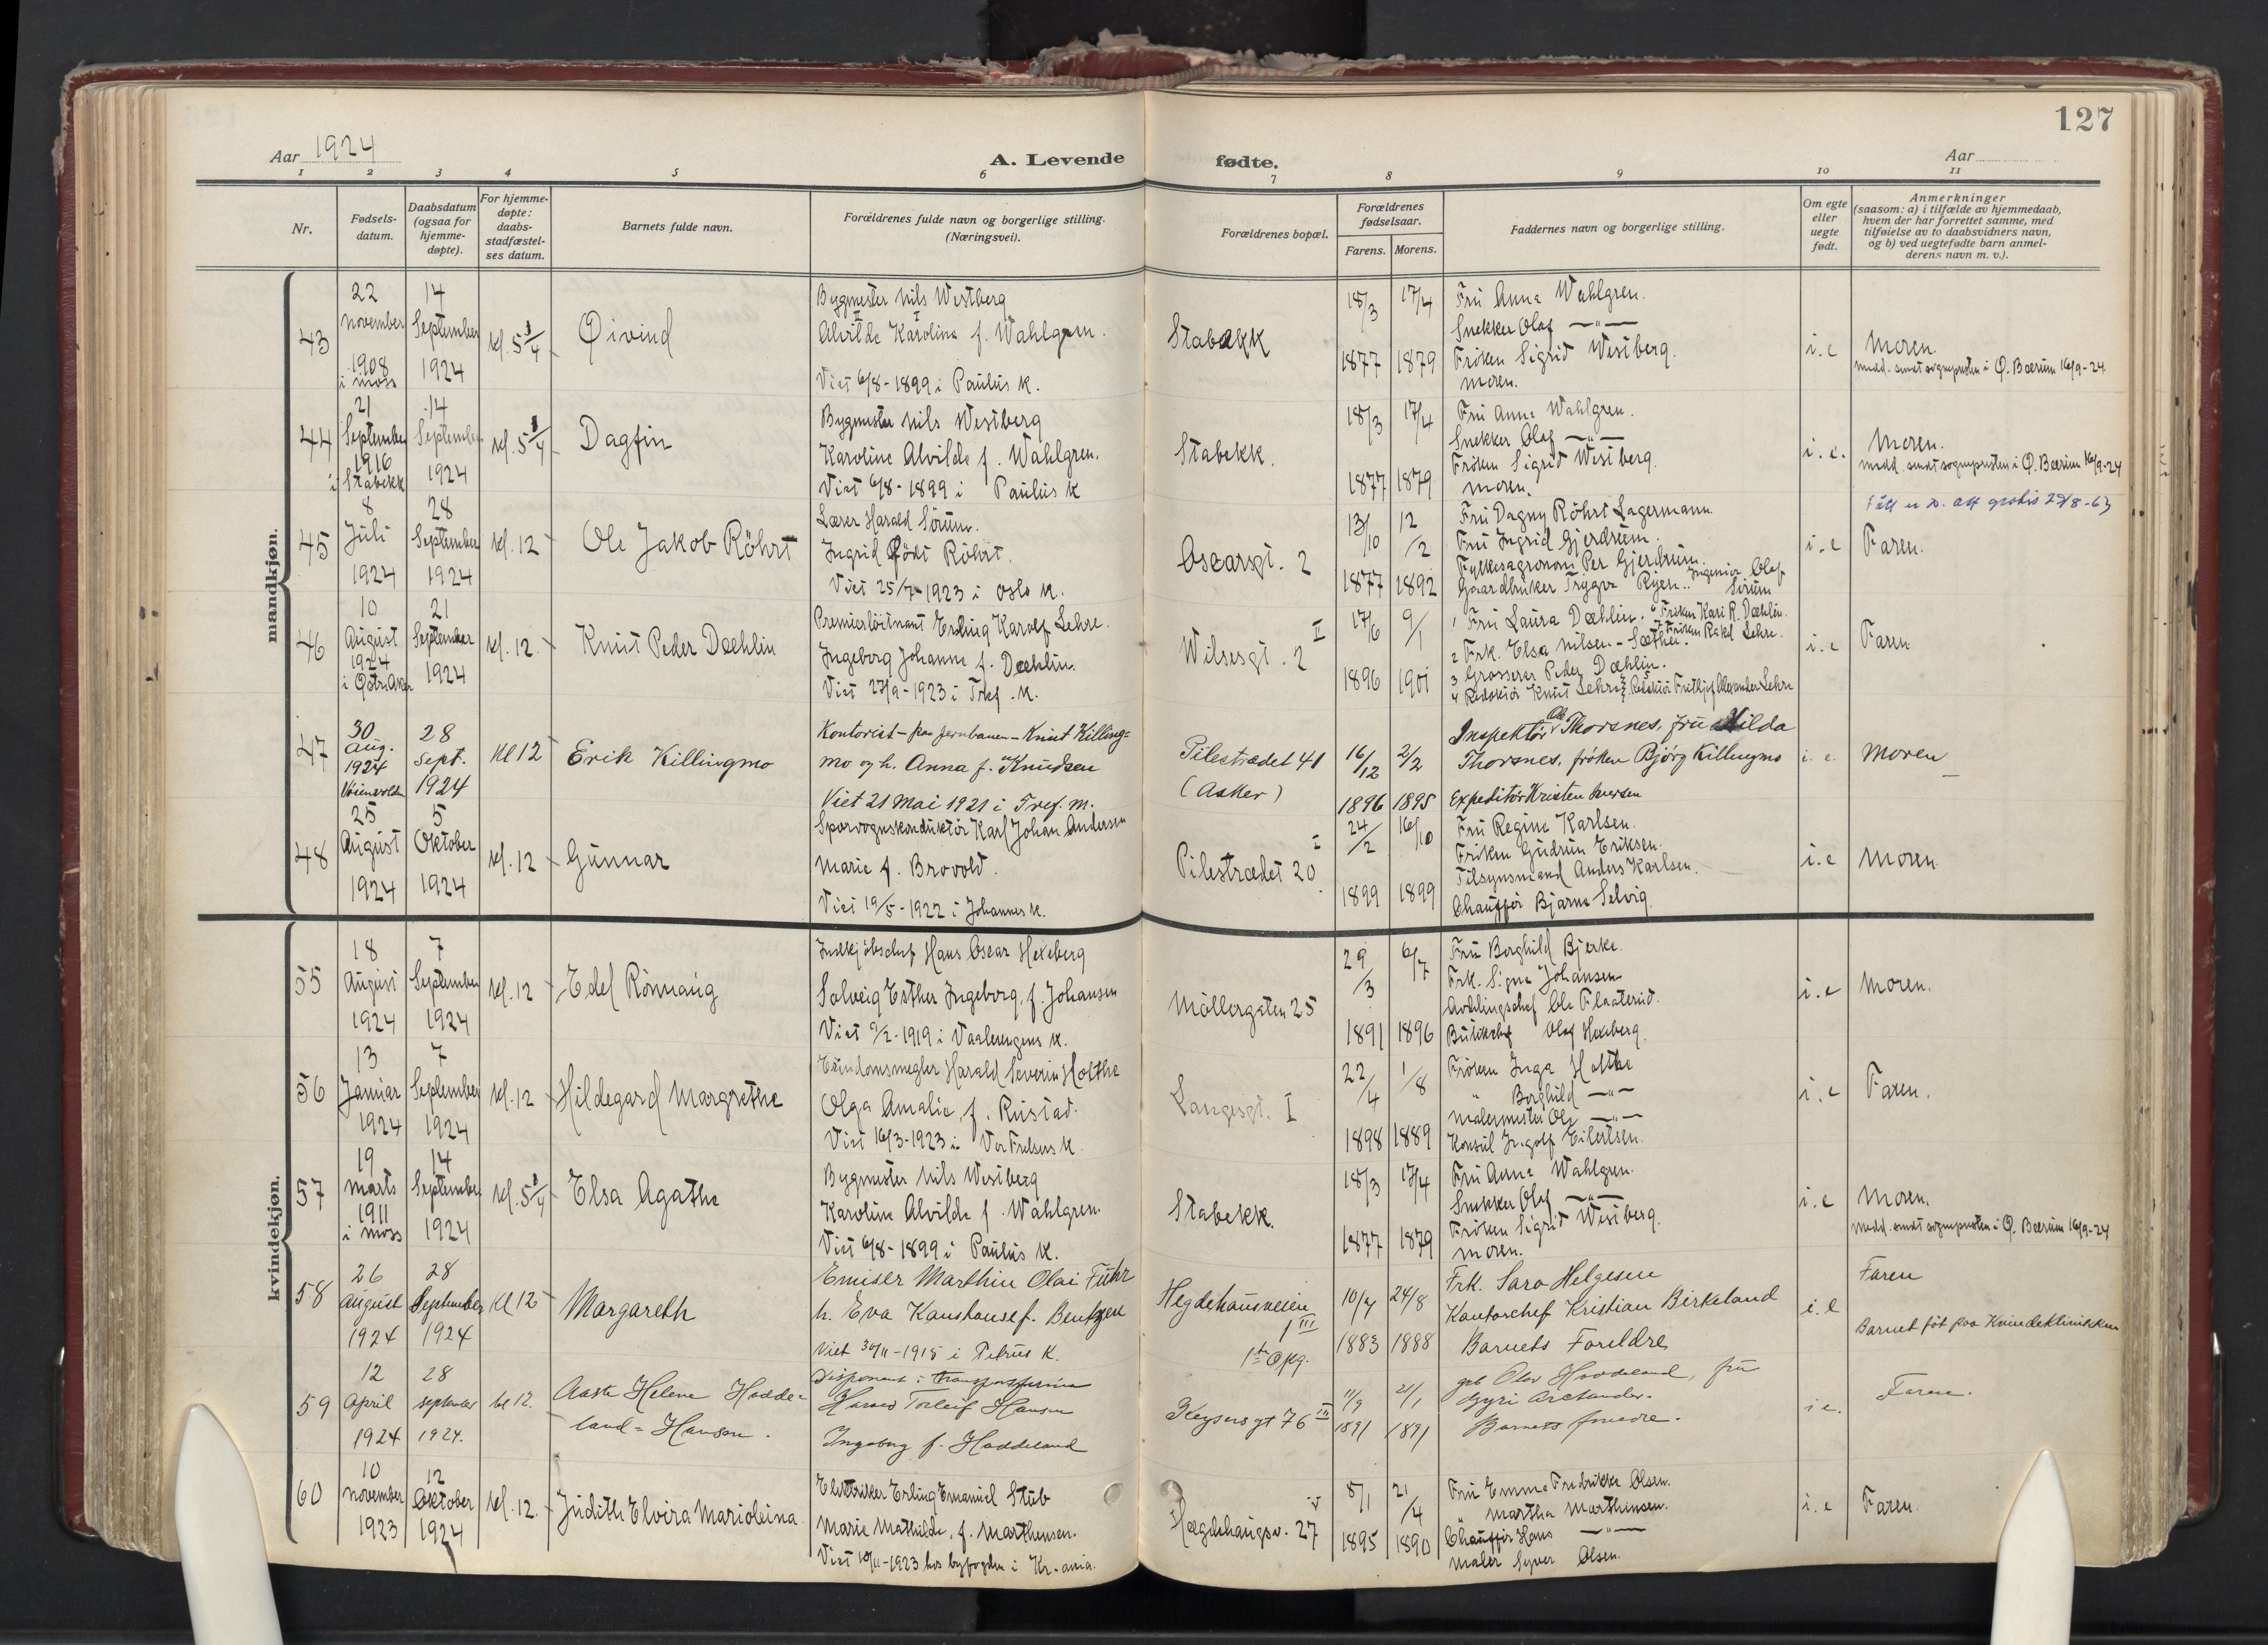 127
Aar 1924
A. Levende fødte.
Aar
1 2 3 4 5 6 7 8 9 10 11
Nr.
Fødsels-
datum.
Daabsdatum
(ogsaa for
hjemme-
døpte).
For hjemme-
døpte:
daabs-
stadfæstel-
ses datum.
Barnets fulde navn.
Forældrenes fulde navn og borgerlige stilling.
(Næringsvei).
Forældrenes bopæl.
Forældrenes
fødselsaar.
Farens. Morens.
Faddernes navn og borgerlige stilling.
Om egte
eller
uegte
født.
Anmerkninger
(saasom: a) i tilfælde av hjemmedaab,
hvem der har forrettet samme, med
tilføielse av to daabsvidners navn,
og b) ved uegtefødte barn anmel-
derens navn m. v.).
mandkjøn.
43
22
November
1908
i Moss
14
September
1924
kl. 5 3/4
Øivind
Bygmester Nils Westberg
Alvilde Karoline f. Wahlgren.
Viet 6/8-1899 i Paulus k.
Stabekk
18/3
1877
17/4
1879
Fru Anna Wahlgren.
Snekker Olaf —"—
Frøken Sigrid Westberg.
moren.
i.e
Moren.
medd. sendt sogneprsten i Ø. Bærum 16/9-24
44
21
September
1916
i Stabekk
14
September
1924
kl. 5 3/4
Dagfin
Bygmester Nils Westberg
Karoline Alvilde f. Wahlgren.
Viet 6/8-1899 i Paulus k
Stabekk.
18/3
1877
17/4
1879
Fru Anna Wahlgren.
Snekker Olaf —"—
Frøken Sigrid Westberg.
moren.
i.e.
Moren.
medd. sendt sogneprsten i Ø. Bærum 16/9-24
45
8
Juli
1924
28
September
1924
kl. 12
Ole Jakob Röhrt
Lærer Harald Sörum.
Ingrid født Röhrt.
Viet 25/7-1923 i Oslo k.
Oscarsgt. 2
13/10
1877
12/2
1892
Fru Dagny Röhrt Lagermann
Fru Ingrid Gjerdrum.
Fylkesagronom Per Gjerdrum.
Gaardbruker Trygve Ryen. Ingeniør Olaf
Sörum
i.e
Faren.
46
10
August
1924
i Østr. Aker
21
September
1924
kl. 12
Knut Peder Dæhlin
Premierløitnant Erling Karolf Lehre.
Ingeborg Johanne f. Dæhlin.
Viet 27/9-1923 i Tref. k.
Wilsesgt. 2 II
17/6
1896
9/1
1901
1 Fru Laura Dæhlin. 6 Frøken Kari R. Dæhlin.
2 Frk. Elsa Nilsen-Sæther. 7 Frøken Rakel Lehre.
3 Grosserer Peder Dæhlin.
4 Redaktør Knut Lehre 5 Redaktør Fritthjof Alexander Lehre
i.e
Faren
47
30
Aug.
1924
28
Sept.
1924
Kl 12
Erik Killingmo
Kontorist-paa jernbanen-Knut Killing=
mo og h. Anna f. Knudsen
Viet 21 Mai 1921 i Tref. M.
Pilestrædet 41
(Asker)
16/12
1896
2/2
1895
Inspektör Ole Thorsnes, fru Hilda
Thorsnes, frøken Bjørg Killingmo
Expeditör Kristen Iversen
i. e.
Moren
48
25
August
1924
5
Oktober
1924
kl. 12
Gunnar
Sporvognskonduktør Karl Johan Andersen
Marie f. Brovold.
Viet 19/5-1922 i Johannes k.
Pilestrædet 20 I
24/2
1899
16/10
1899
Fru Regine Karlsen.
Frøken Gudrun Eriksen.
Tilsynsmand Anders Karlsen.
Chauffør Bjarne Selvig.
i.e
Moren
kvindekjøn.
55
18
August
1924
7
September
1924
kl. 12
Edel Rönnaug
Indkjøbschef Hans Oscar Hexeberg
Solveig Esther Ingeborg, f. Johansen
Viet 9/2-1919 i Vaalerengens k.
Möllergaten 25
29/3
1891
6/7
1896
Fru Borghild Bjerke.
Frk. Signe Johansen
Avdelingschef Ole Flaaterud.
Olaf Hexeberg.
i.e
Moren.
56
13
Januar
1924
7
September
1924
kl. 12
Hildegard Margrethe
Eiendomsmegler Harald Severin Holthe
Olga Amalie f. Rustad.
Viet 16/3-1923 i Vor Frelsers k.
Langesgt. I
22/4
1898
1/8
1889
Frøken Inga Holthe
" Borghild —"—
Malermester Ole —"—
Konsul Ingolf Eilertsen.
i.e
Faren.
57
19
Marts
1911
i Moss
14
September
1924
kl. 5 3/4
Elsa Agathe
Bygmester Nils Westberg
Karoline Alvilde f. Wahlgren.
Viet 6/8-1899 i Paulus k.
Stabekk.
18/3
1877
17/4
1879
Fru Anna Wahlgren.
Snekker Olaf —"—
Frøken Sigrid Westberg.
moren.
i.e
Moren.
medd. sendt sogneprsten i Ø. Bærum 16/9-24
58
26
August
1924
28
September
1924
Kl 12
Margareth
Emisær Marthin Olai Fuhr
h. Eva Kanshanse f. Bentzen
Viet 30/11-1915 i Petrus K.
Hegdehausveien
1 III
1ste Opg.
10/7
1883
24/8
1888
Frk. Sara Helgesen
Kontorchef Kristian Birkeland
Barnets Foreldre
i.e
Faren
Barnet föt paa Kvindeklinikken
59
12
April
1924
28
September
1924.
kl 12.
Aaste Helene Hodde=
land=Hansen.
Disponent i transportfirma
Harald Torleif Hansen
Ingeborg f. Hoddeland
Keysersgt 76 III
11/9
1891
21/1
1891
Olav Hoddeland, fru
Gyri Arctander.
Barnets foreldre.
i e.
Faren.
60
10
November
1923
12
Oktober
1924
kl. 12.
Judith Elvira Marioleina
Elektriker Erling Emanuel Stub
Marie Mathilde, f. Marthensen.
Viet 10/11-1923 hos byfogden i Kr.ania.
Hægdehaugsv. 27 V
5/1
1895
21/4
1890
Fru Emma Fredrikke Olsen.
" Martha Marthinsen.
Chauffør Hans —"—
Maler Syver Olsen.
i.e
Faren.